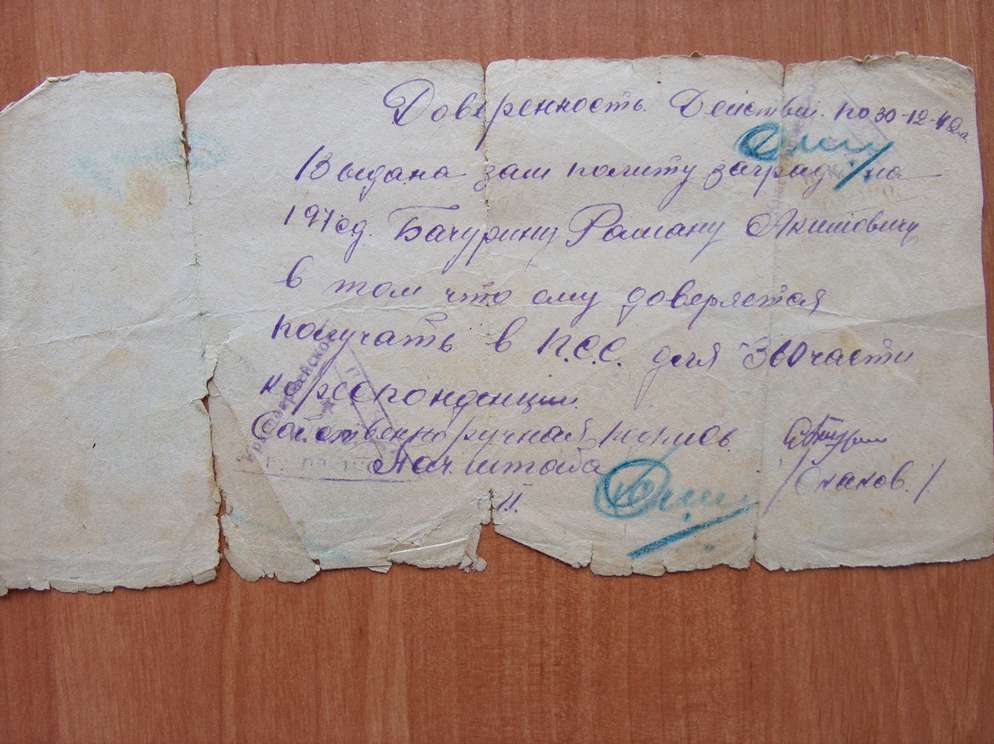 Доверенность. Действит. по 30-12-42г.
Выдана зам политу заград на
197сд. Бачурину Роману Якимовичу
в том что ему доверяется
получать в П.С.С. для 360 части
корреспонденции.
Собственноручная, подпись
Нач штаба /Смаков./